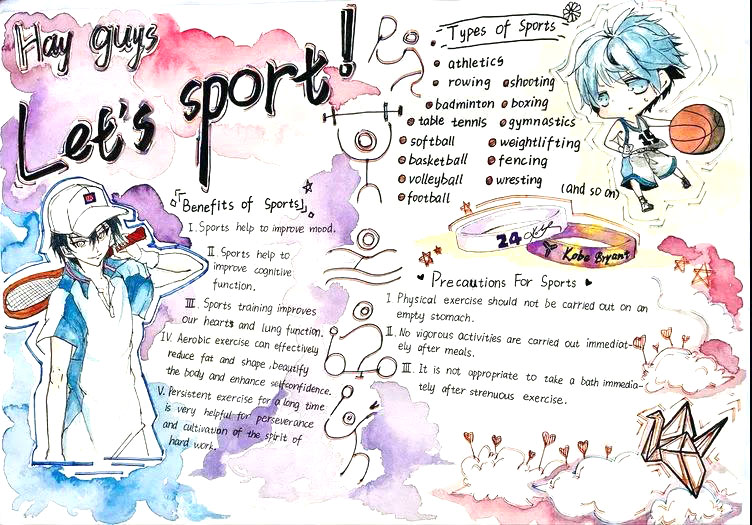 Hay guys
Let's sport!
Types of Sports
athletics
rowing
shooting
badminton
boxing
table tennis
gymnastics
softball
weightlifting
basketball
fencing
volleyball
wresting
football
(and so on)
24
Kobe Bryant
「Benefits of Sports」
I. Sports help to improve mood.
II. Sports help to
improve cognitive
function.
III. Sports training improves
our hearts and lung function.
IV. Aerobic exercise can effectively
reduce fat and shape, beautify
the body and enhance selfconfidence.
V. Persistent exercise for a long time
is very helpful for perseverance
and cultivation of the spirit of
hard work.
Precautions For Sports
I. Physical exercise should not be carried out on an
empty stomach.
II. No vigorous activities are carried out immediat-
ely after meals.
III. It is not appropriate to take a bath immedia-
tely after strenuous exercise.